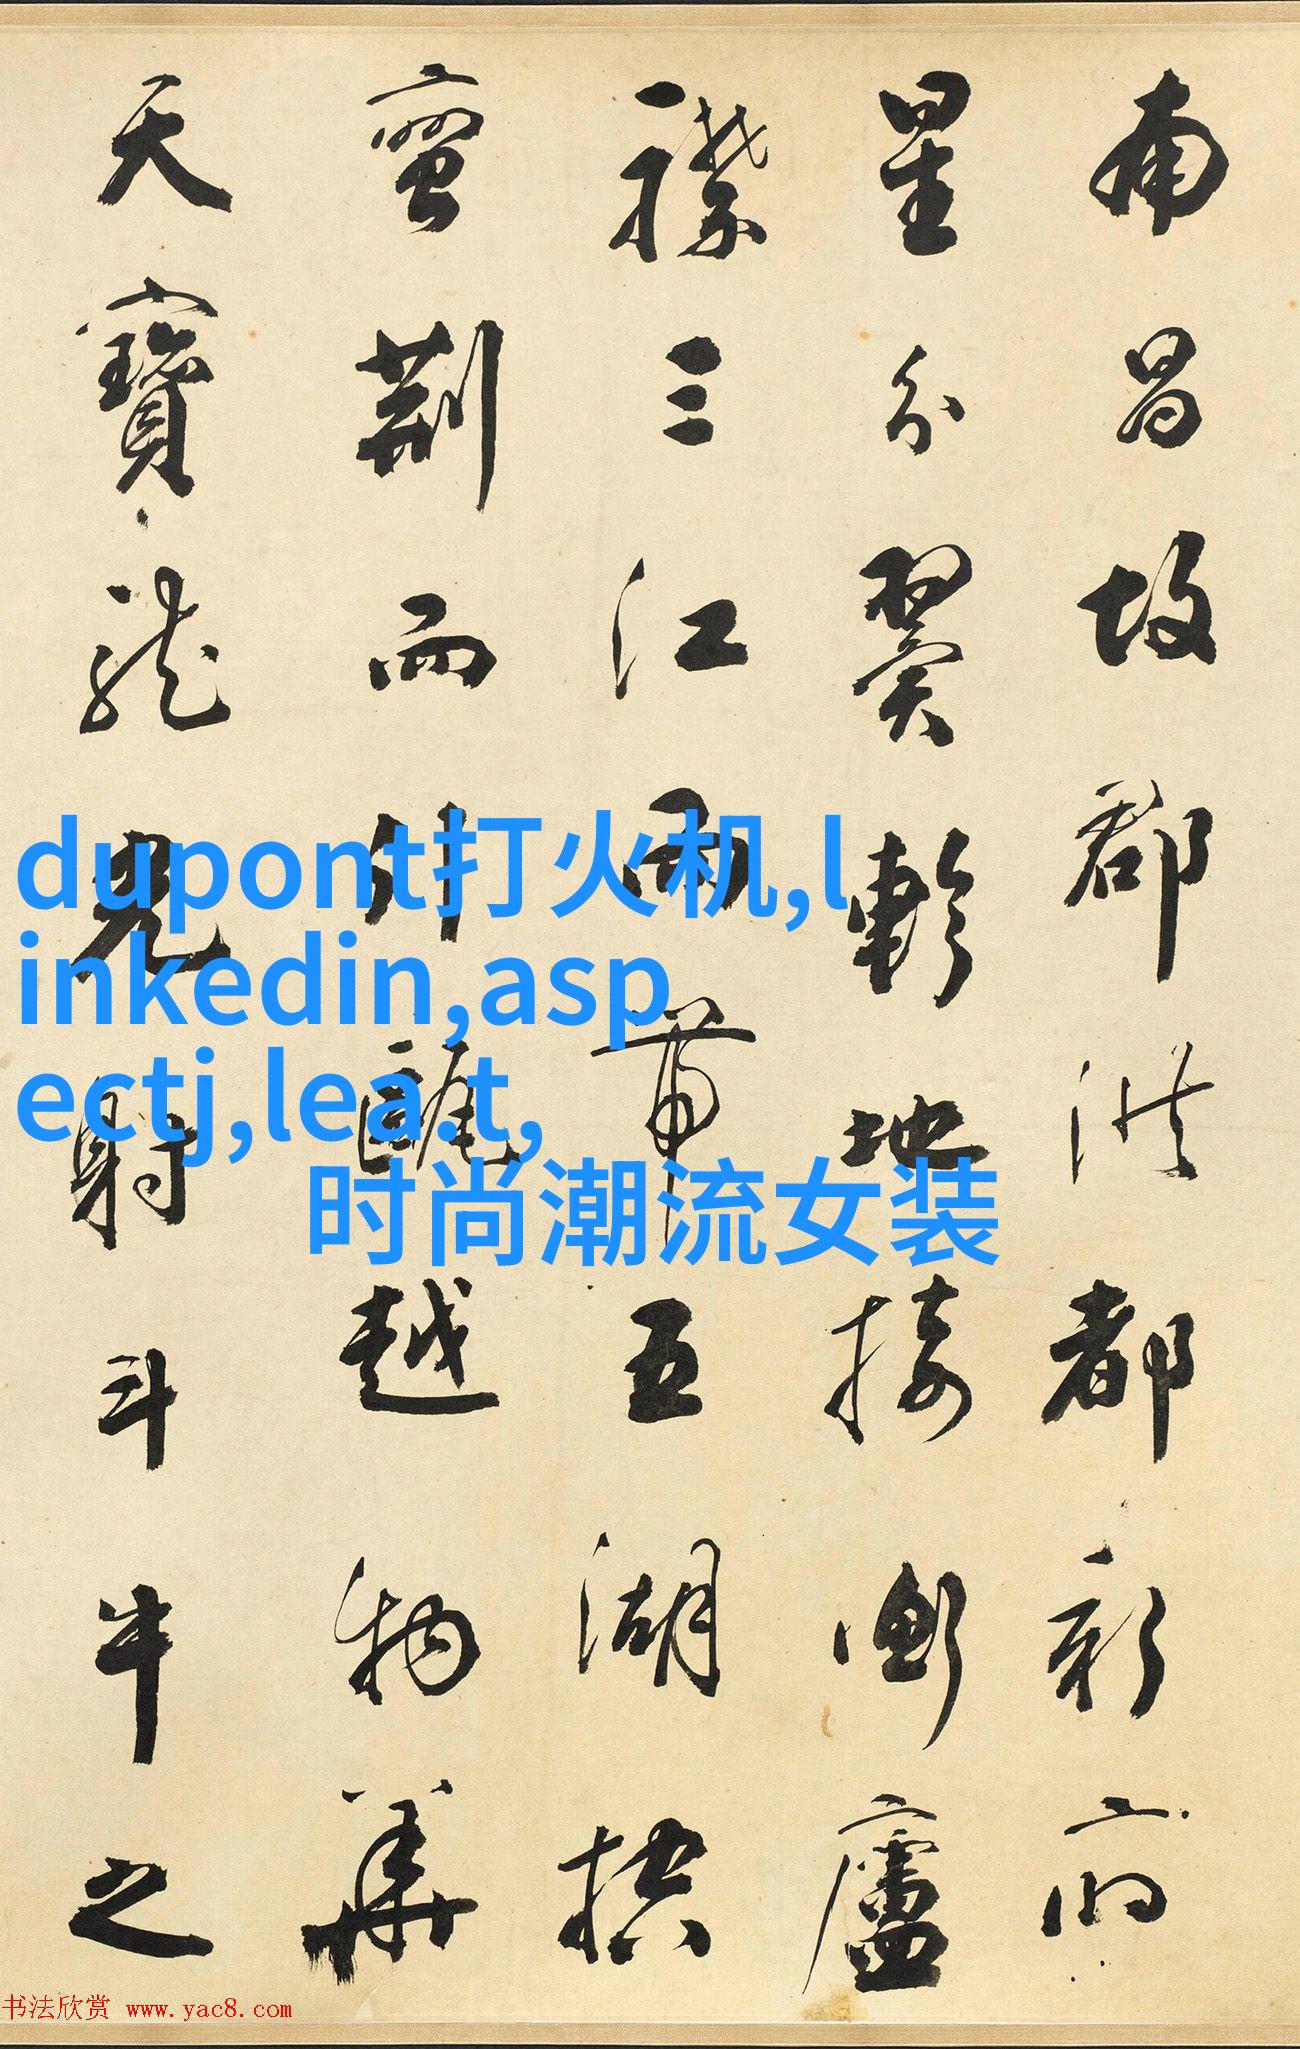 南昌故郡洪都新府
星分翼軫地接衡廬
襟三江而帶五湖控
蠻荊而引甌越物華
天寶龍光射斗牛之
dupont打火机,l
inkedin,asp
ectj,lea.t,
时尚潮流女装
书法欣赏 www.yac8.com